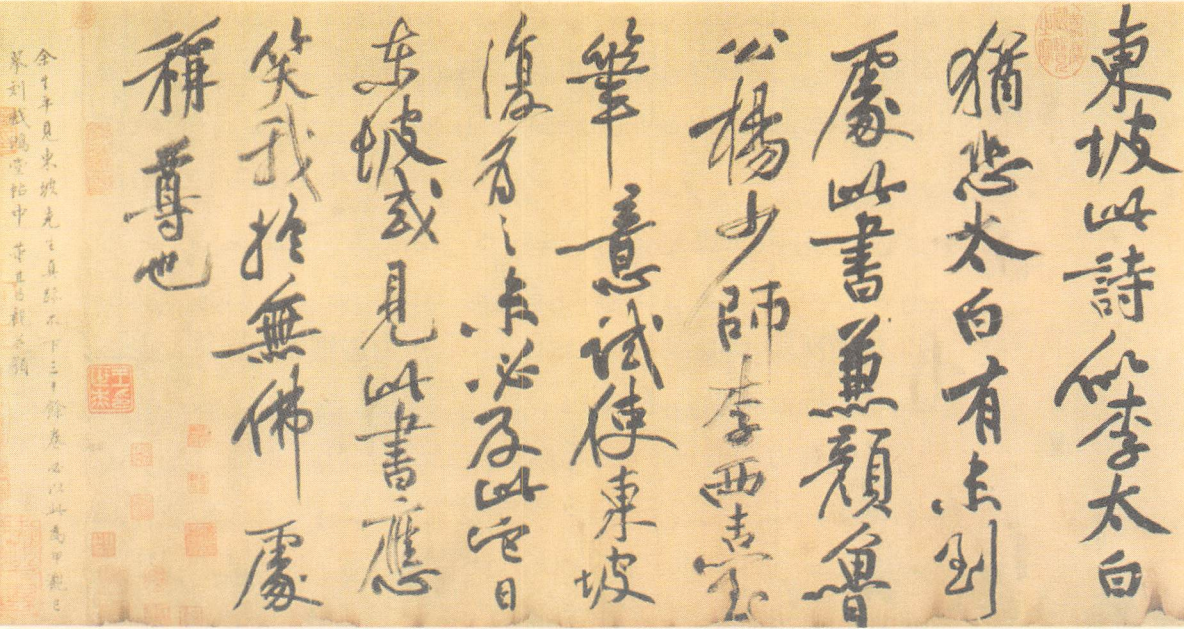 東坡此詩似李太白
猶恐太白有未到
處此書兼顏魯
公楊少師李西臺
筆意試使東坡
復爲之未必及此它日
東坡或見此書應
笑我於無佛處
稱尊也
余生平見東坡先生真跡不下三十餘卷必以此為甲觀已
摹刻戲鴻堂帖中 董其昌觀并題